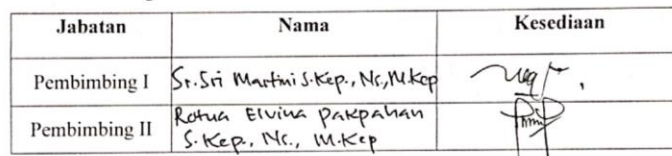 Jabatan Nama Kesediaan
Pembimbing I Sr. Sri Martini S.Kep., Ns., M.Kep
Pembimbing II Rotua Elvina Pakpahan
S. Kep., Ns., M.Kep